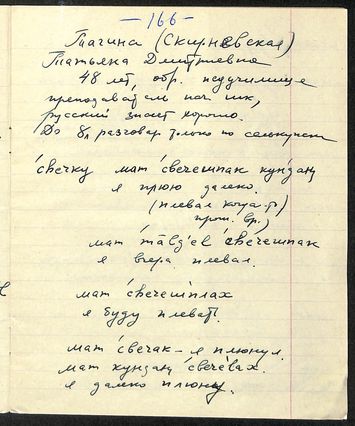 — 166 —
Тагина (Скирневская)
Татьяна Дмитриевна
48 лет, обр. педучилище
преподаватель нач. шк,
русский знает хорошо.
До 8л разговар только по селькупски
свечку мат свечешпак кундақ
я плюю далеко.
(плевал когда-то)
прош. вр.)
мат свечешпак
я вчера плевал.
мат свечешплах
я буду плевать.
мат свечак – я плюнул.
мат кундақ свечевах.
я далеко плюну.